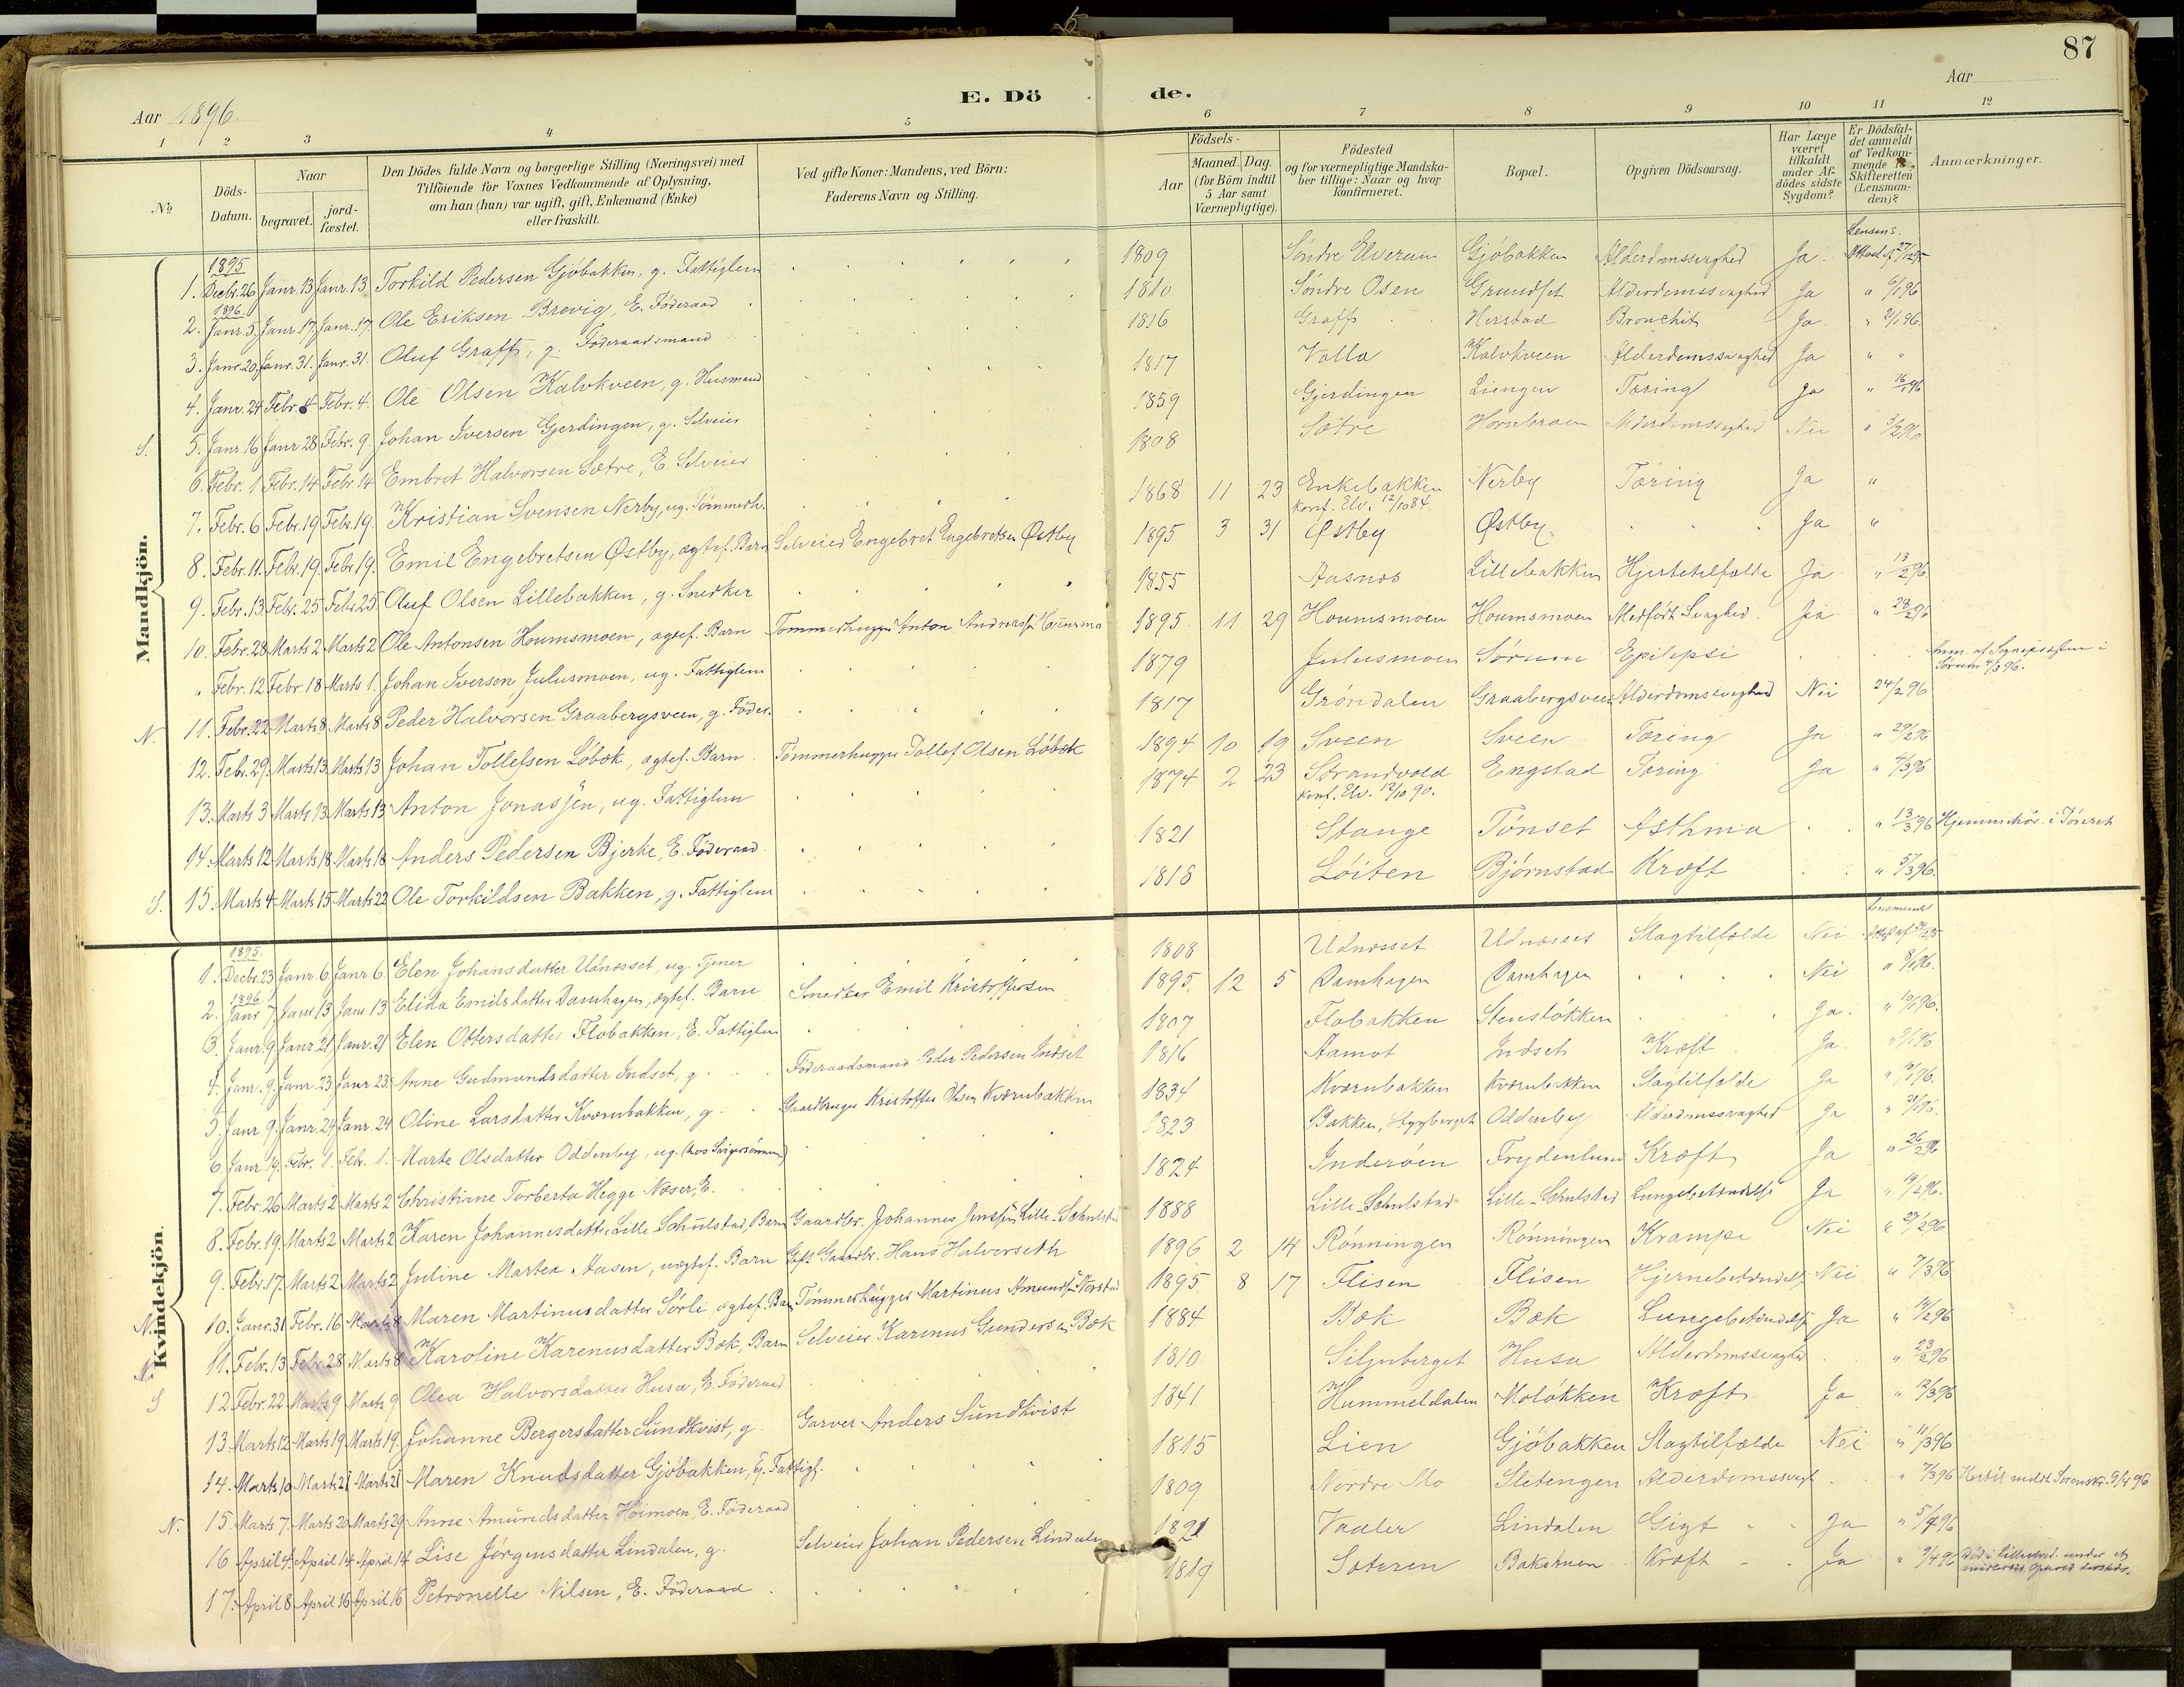 87
Aar 1896.
E. Döde.
Aar
1 2 3 4 5 6 7 8 9 10 11 12
No
Döds-Datum.
Naar
begravet.
jord-fæstet.
Den Dödes fulde Navn og borgerlige Stilling (Næringsvei) med
Tilföiende for Voxnes Vedkommende af Oplysning,
om han (hun) var ugift, gift, Enkemand (Enke)
eller fraskilt.
Ved gifte Koner: Mandens, ved Börn:
Faderens Navn og Stilling.
Födsels-
Aar
Maaned. Dag.
(for Börn indtil
5 Aar samt
Værnepligtige).
Födested
og for værnepligtige Mandska-
ber tillige: Naar og hvor
konfirmeret.
Bopæl.
Opgiven Dödsaarsag.
Har Læge
været
tilkaldt
under Af-
dödes sidste
Sygdom?
Er Dödsfal-
det anmeldt
af Vedkom-
mende til
Skifteretten
(Lensman-
den)?
Anmærkninger.
Mandkjön.
1895
1. Decbr. 26 Janr. 13 Janr. 13 Torkild Pedersen Gjöbakken, g. Fattiglem 1809 Söndre Elverum Gjöbakken Alderdomssvaghed Ja. Lensms. Attest af 27/12 95
1896.
2. Janr. 5. Janr. 17. Janr. 17. Ole Eriksen Brevig, E. Föderaad 1810 Söndre Osen Grundset Alderdomssvaghed Ja " 6/1 96
3. Janr. 20. Janr. 31. Janr. 31. Oluf Graff, g. Föderaadsmand 1816 Graff Herstad Bronchit Ja " 21/1 96.
4. Janr. 24 Febr. 4 Febr. 4. Ole Olsen Kalvkveen, g. Husmand 1817 Valla Kalvkveen Alderdomssvaghed Ja " "
S. 5. Janr. 16 Janr. 28 Febr. 9. Johan Iversen Gjerdingen, g. Selveier 1859 Gjerdingen Liengen Tæring Ja " 16/1 96
6. Febr. 1 Febr. 14 Febr. 14 Embret Halvorsen Sætre, E. Selveier 1808 Sætre Hornbroen Alderdomssvaghed Nei " 3/2 96
7. Febr. 6 Febr. 19 Febr. 19. Kristian Svensen Nerby, ug. Tömmerh. 1868 11 23 Enkebakken Nerby Tæring Ja "
konf. Elv. 12/10 84.
8. Febr. 11. Febr. 19. Febr. 19. Emil Engebretsen Østby, ægtef. Barn Selveier Engebret Engebretsen Østby 1895 3 31 Østby Østby. Ja "
9. Febr. 13 Febr. 25 Febr. 25 Oluf Olsen Lillebakken, g. Snedker 1855 Aasnes Lillebakken Hjertetilfælde Ja " 13/2 96.
10. Febr. 28 Marts 2 Marts 2 Ole Antonsen Houmsmoen, ægtef. Barn Tömmerhugger Anton 1895 11 29 Houmsmoen Houmsmoen Medfödt Svaghed. Ja " 28/2 96
" Febr. 12 Febr. 18 Marts 1. Johan Iversen Julusmoen, ug. Fattiglem 1879 Julusmoen Sörum Epilepsi Anm. af Sognepræsten i
Sörum 4/3 96.
N. 11. Febr. 22 Marts 8 Marts 8 Peder Halvorsen Graabergsveen, g. Föder. 1817 Gröndalen Graabergsveen Alderdomssvaghed Nei 24/2 96
12. Febr. 29. Marts 13 Marts 13 Johan Tollefsen Löbæk, ægtef. Barn Tömmerhugger Tollef Olsen Löbæk 1894 10 19 Sveen Sveen Tæring Ja " 29/2 96
13. Marts 3 Marts 13 Marts 13 Anton Jonassen, ug. Fattiglem 1874 2 23 Strandvold Engstad Tæring Ja " 4/3 96
konf. Elv. 12/10 90.
14. Marts 12 Marts 18 Marts 18 Anders Pedersen Bjerke, E. Föderaad 1821 Stange Tönset Asthma " 13/3 96 Hjemmehör. i Tönset
S. 15. Marts 4 Marts 15 Marts 22 Ole Torkildsen Bakken, g. Fattiglem 1818 Löiten Björnstad Kræft " 5/3 96.
Kvindekjön.
1895.
1. Decbr. 23 Janr. 6 Janr. 6. Elen Johansdatter Udnæsset, ug. Tjener 1808 Udnæsset Udnæsset Slagtilfælde Nei
1896.
2. Janr. 7. Janr. 13 Janr. 13 Elida Emilsdatter Damhagen, ægtef. Barn Snedker Emil Kristoffersen 1895. 12 5 Damhagen Damhagen Nei " 8/1 96.
3. Janr. 9. Janr. 21 Janr. 21 Elen Ottersdatter Flobakken, E. Fattiglem 1807 Flobakken Stenslökken Ja. " 10/1 96.
4. Janr. 9. Janr. 23 Janr. 23. Anne Gudmundsdatter Indset, g. Föderaadsmand Peder Pedersen Indset 1816 Aamot Indset Kræft Ja.
5. Janr. 9. Janr. 24 Janr. 24 Oline Larsdatter Kværnbakken, g. Gaardbruger Kristoffer Olsen Kværnbakken 1834 Kværnbakken Kværnbakken Slagtilfælde Ja
6. Janr. 19. Febr. 1. Febr. 1. Marte Olsdatter Oddenby, ug. (hos Svigersönnen) 1823 Bakken, Stygberget Oddenby Alderdomssvaghed Ja " 21/1 96.
7. Febr. 26 Marts 2 Marts 2 Christiane Torberta Hegge Næser, E. 1824 Inderöen Frydenlund Kræft Ja " 26/2 96
8. Febr. 19. Marts 2 Marts 2 Karen Johannesdatter Lille-Schulstad, Barn Gaardbr. Johannes Jenssen Lille-Schulstad 1888 Lille-Schulstad Lille-Schulstad Lungebetændelse Ja
9. Febr. 17. Marts 2 Marts 2 Juline Martea Aasen, uægtef. Barn Gift Gaardbr. Hans Halverseth 1896 2 14 Rönningen Rönningen Krampe Nei
N. 10. Janr. 31 Febr. 16 Marts 8 Maren Martinusdatter Sörli ægtef. Barn Tömmerhugger Martinus Amundsen Norstad 1895 8 17 Flisen Flisen Hjernebetændelse Nei " 7/3 96
N. 11. Febr. 13 Febr. 28 Marts 8 Karoline Karenusdatter Bæk, Barn Selveier Karenus Gundersen Bæk 1884 Bæk Bæk Lungebetændelse Ja
S 12. Febr. 22 Marts 9 Marts 9 Olea Halvorsdatter Husu, E. Föderaad 1810 Siljuberget Husu Alderdomssvaghed " 23/2 96
13. Marts 12 Marts 19 Marts 19. Johanne Bergersdatter Sundkvist, g. Garver Anders Sundkvist 1841 Hummeldalen Molökken Kræft Ja " 12/3 96
14. Marts 10 Marts 21 Marts 21 Maren Knudsdatter Gjöbakken, g. Fattigl. 1815 Lien Gjöbakken Slagtilfælde Nei " 11/3 96
N. 15. Marts 7. Marts 20 Marts 29 Anne Amundsdatter Höimoen, E. Föderaad 1809 Nordre Mo Sletengen Alderdomssvagh. " 7/3 96
16 April 4. April 14 April 14 Lise Jörgensdatter Lindalen, g. Selveier Johan Pedersen Lindalen 1821 Vaaler Lindalen Gigt Ja " 5/4 96
17. April 8 April 16 April 16 Petronelle Nilsen, E. Föderaad 1819 Sæteren Bakstuen Kræft Ja " 9/4 96